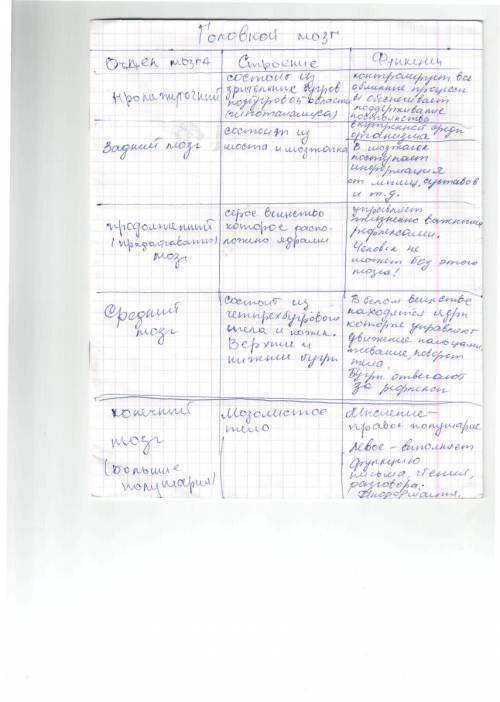 Головной мозг
Отдел мозга Строение Функции
Промежуточный
состоит из
зрительных бугров
подбугровой области
(гипоталамуса)
контролирует все
обменные процессы
и обеспечивает
поддерживание
постоянства
внутренней среды
организма
Задний мозг
состоит из
моста и мозжечка
В мозжечок
поступает
информация
от мышц, суставов
и т.д.
продолговатый
мозг
серое вещество
которое распо-
ложено ядрами
управляет
жизненно важными
рефлексами.
Человек не
может без этого
мозга!
Средний
мозг
состоит из
четверохбугрового
тела и ножек.
Верхние и
нижние бугры
В белом веществе
находятся ядра
которые управляют
движение пальцами,
жевание, поворот
тела.
Бугры отвечают
за рефлексы
конечный
мозг
(большие
полушария)
Мозолистое
тело
Мышление-
правое полушарие
Левое - выполняет
функцию
письма, чтения,
разговора.
Информация.